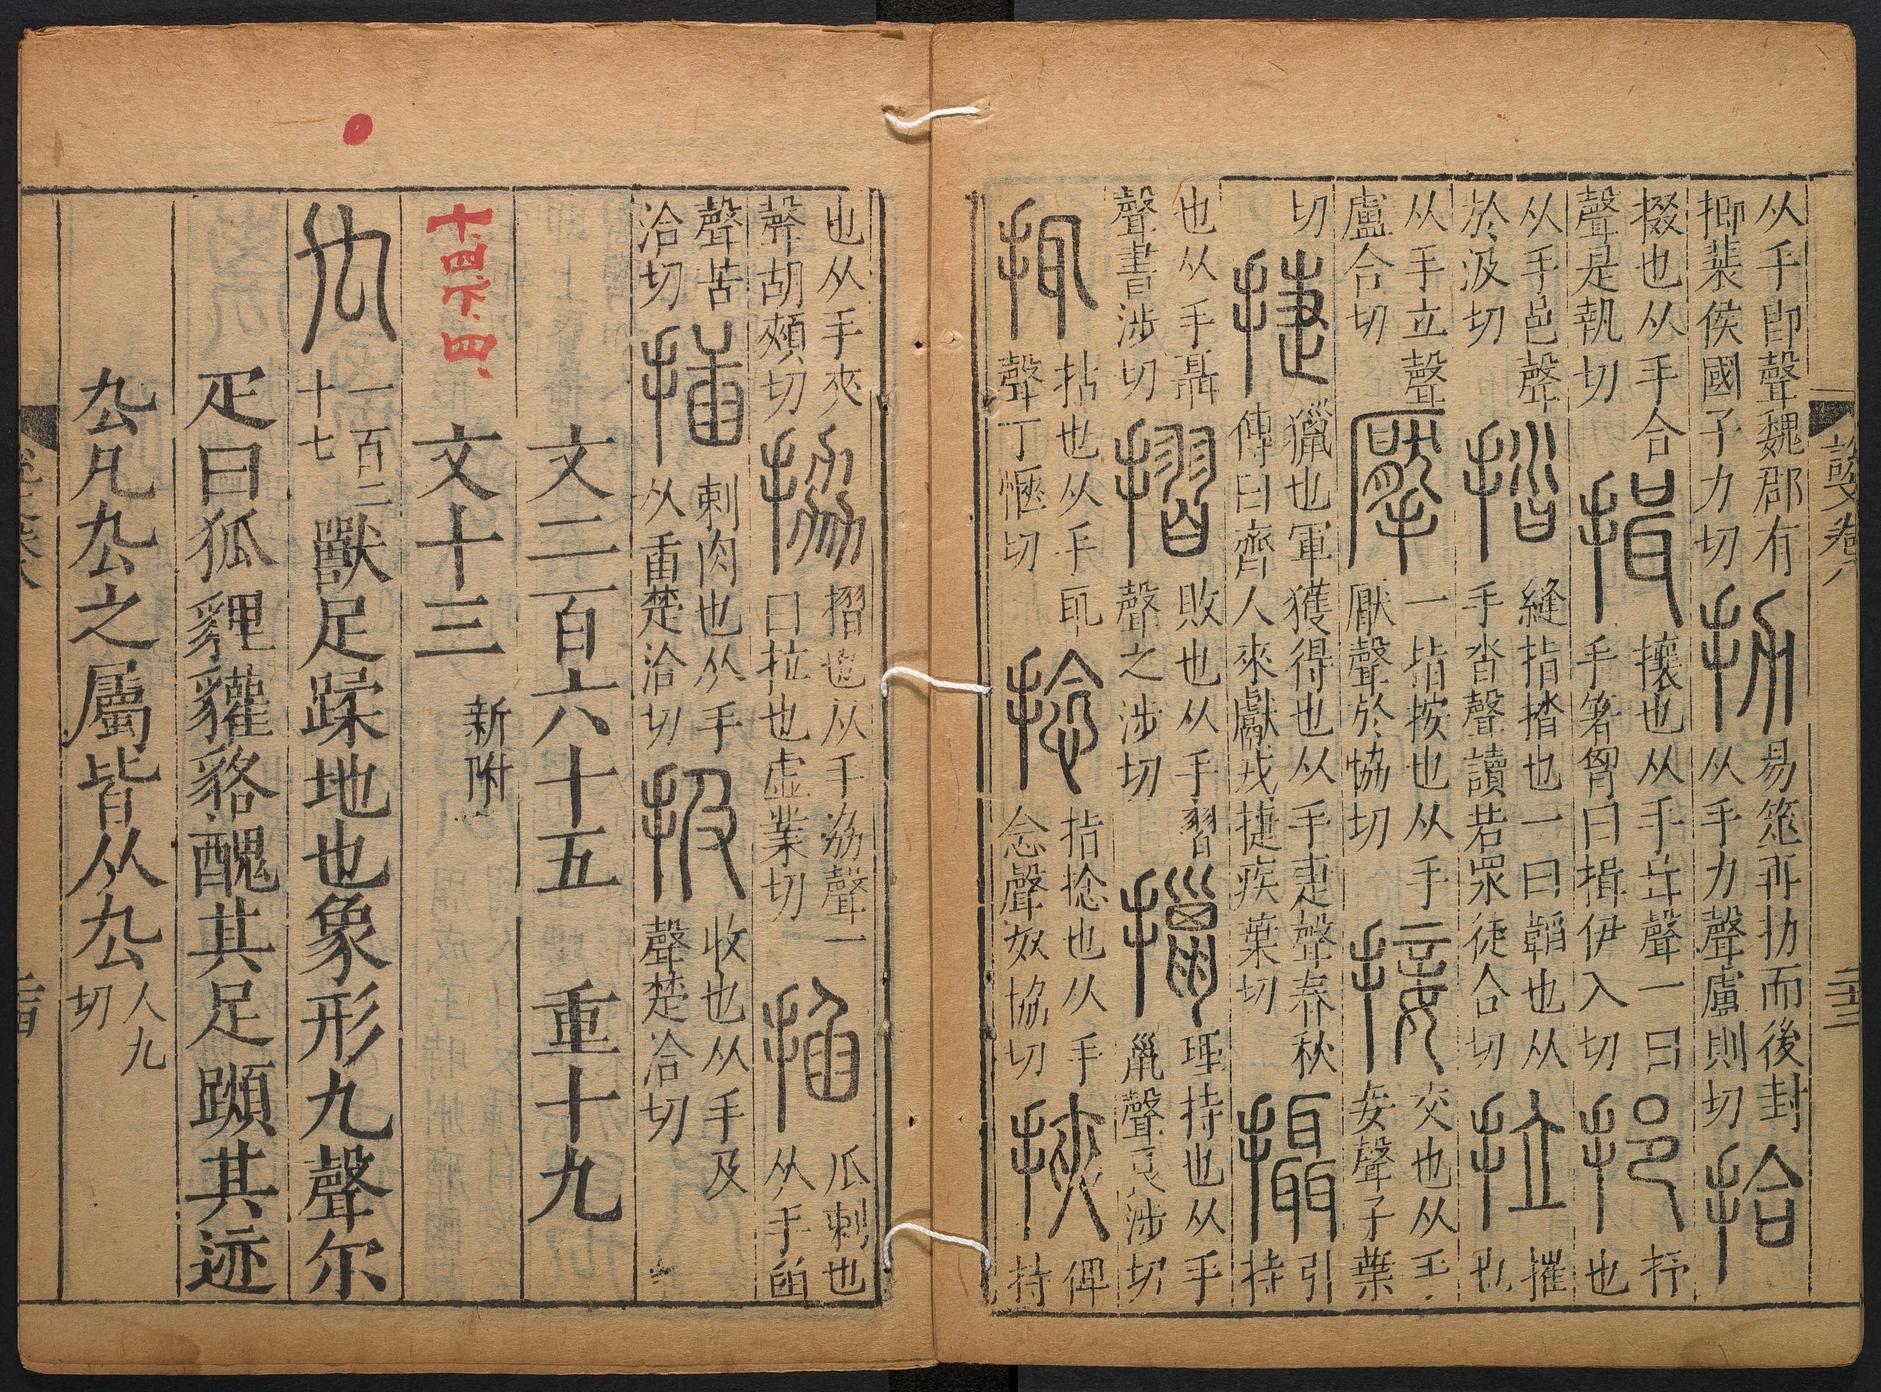 从手即聲魏郡有
𢪇裴侯國子力切
扐
易筮再扐而後封
从手力聲盧則切
拾
掇也从手合
聲是執切
揖
攘也从手咠聲一曰
手箸胷曰揖伊入切
挹
抒也
从手邑聲
於汲切
揩
縫指揩也一曰韜也从
手沓聲讀若眾徒合切
拉
摧也
从手立聲
盧合切
擪
一指按也从手
厭聲於協切
接
交也从手
妾聲子葉
切
捷
獵也軍獲得也从手疌聲春秋
傳曰齊人來獻戎捷疾葉切
攝
引持
也从手聶
聲書涉切
摺
敗也从手習
聲之涉切
擸
理持也从手
巤聲良涉切
拈也从手耴
聲丁愜切
捻
指捻也从手
念聲奴協切
挾
俾持
也从手夾
聲胡頰切
拹
摺也从手劦聲一
曰拉也虛業切
掐
爪刺也
从手臽
聲苦
洽切
插
刺肉也从手
从臿楚洽切
扱
收也从手及
聲楚洽切
文二百六十五 重十九
文十三 新附
十四下四
禸
一百二
十七
獸足蹂地也象形九聲尔
疋曰狐貍貛貉醜其足蹞其迹
厹凡厹之屬皆从厹
人九
切
說文卷八